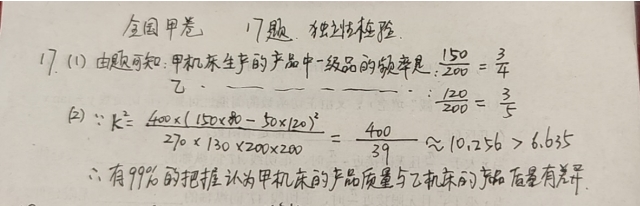 全国甲卷 17题 独立性检验
17. (1) 由题可知:甲机床生产的产品中一级品的频率是:150/200 = 3/4
乙 . — — — — — — : 120/200 = 3/5
(2) ∵ K² = 400×(150×80 − 50×120)² / 270×130×200×200 = 400/39 ≈ 10.256 > 6.635
∴ 有99%的把握认为甲机床的产品质量与乙机床的产品质量有差异.